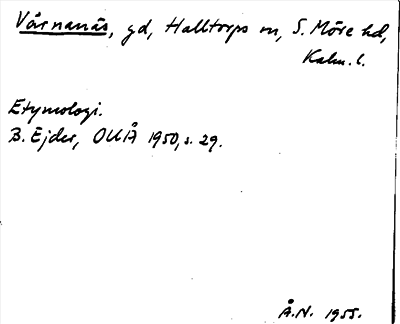 Värnanäs, gd, Halltorps sn, S. Möre hd,
Kalm. l.
Etymologi.
B. Ejder, OUÅ 1950, s. 29.
Å.N. 1955.